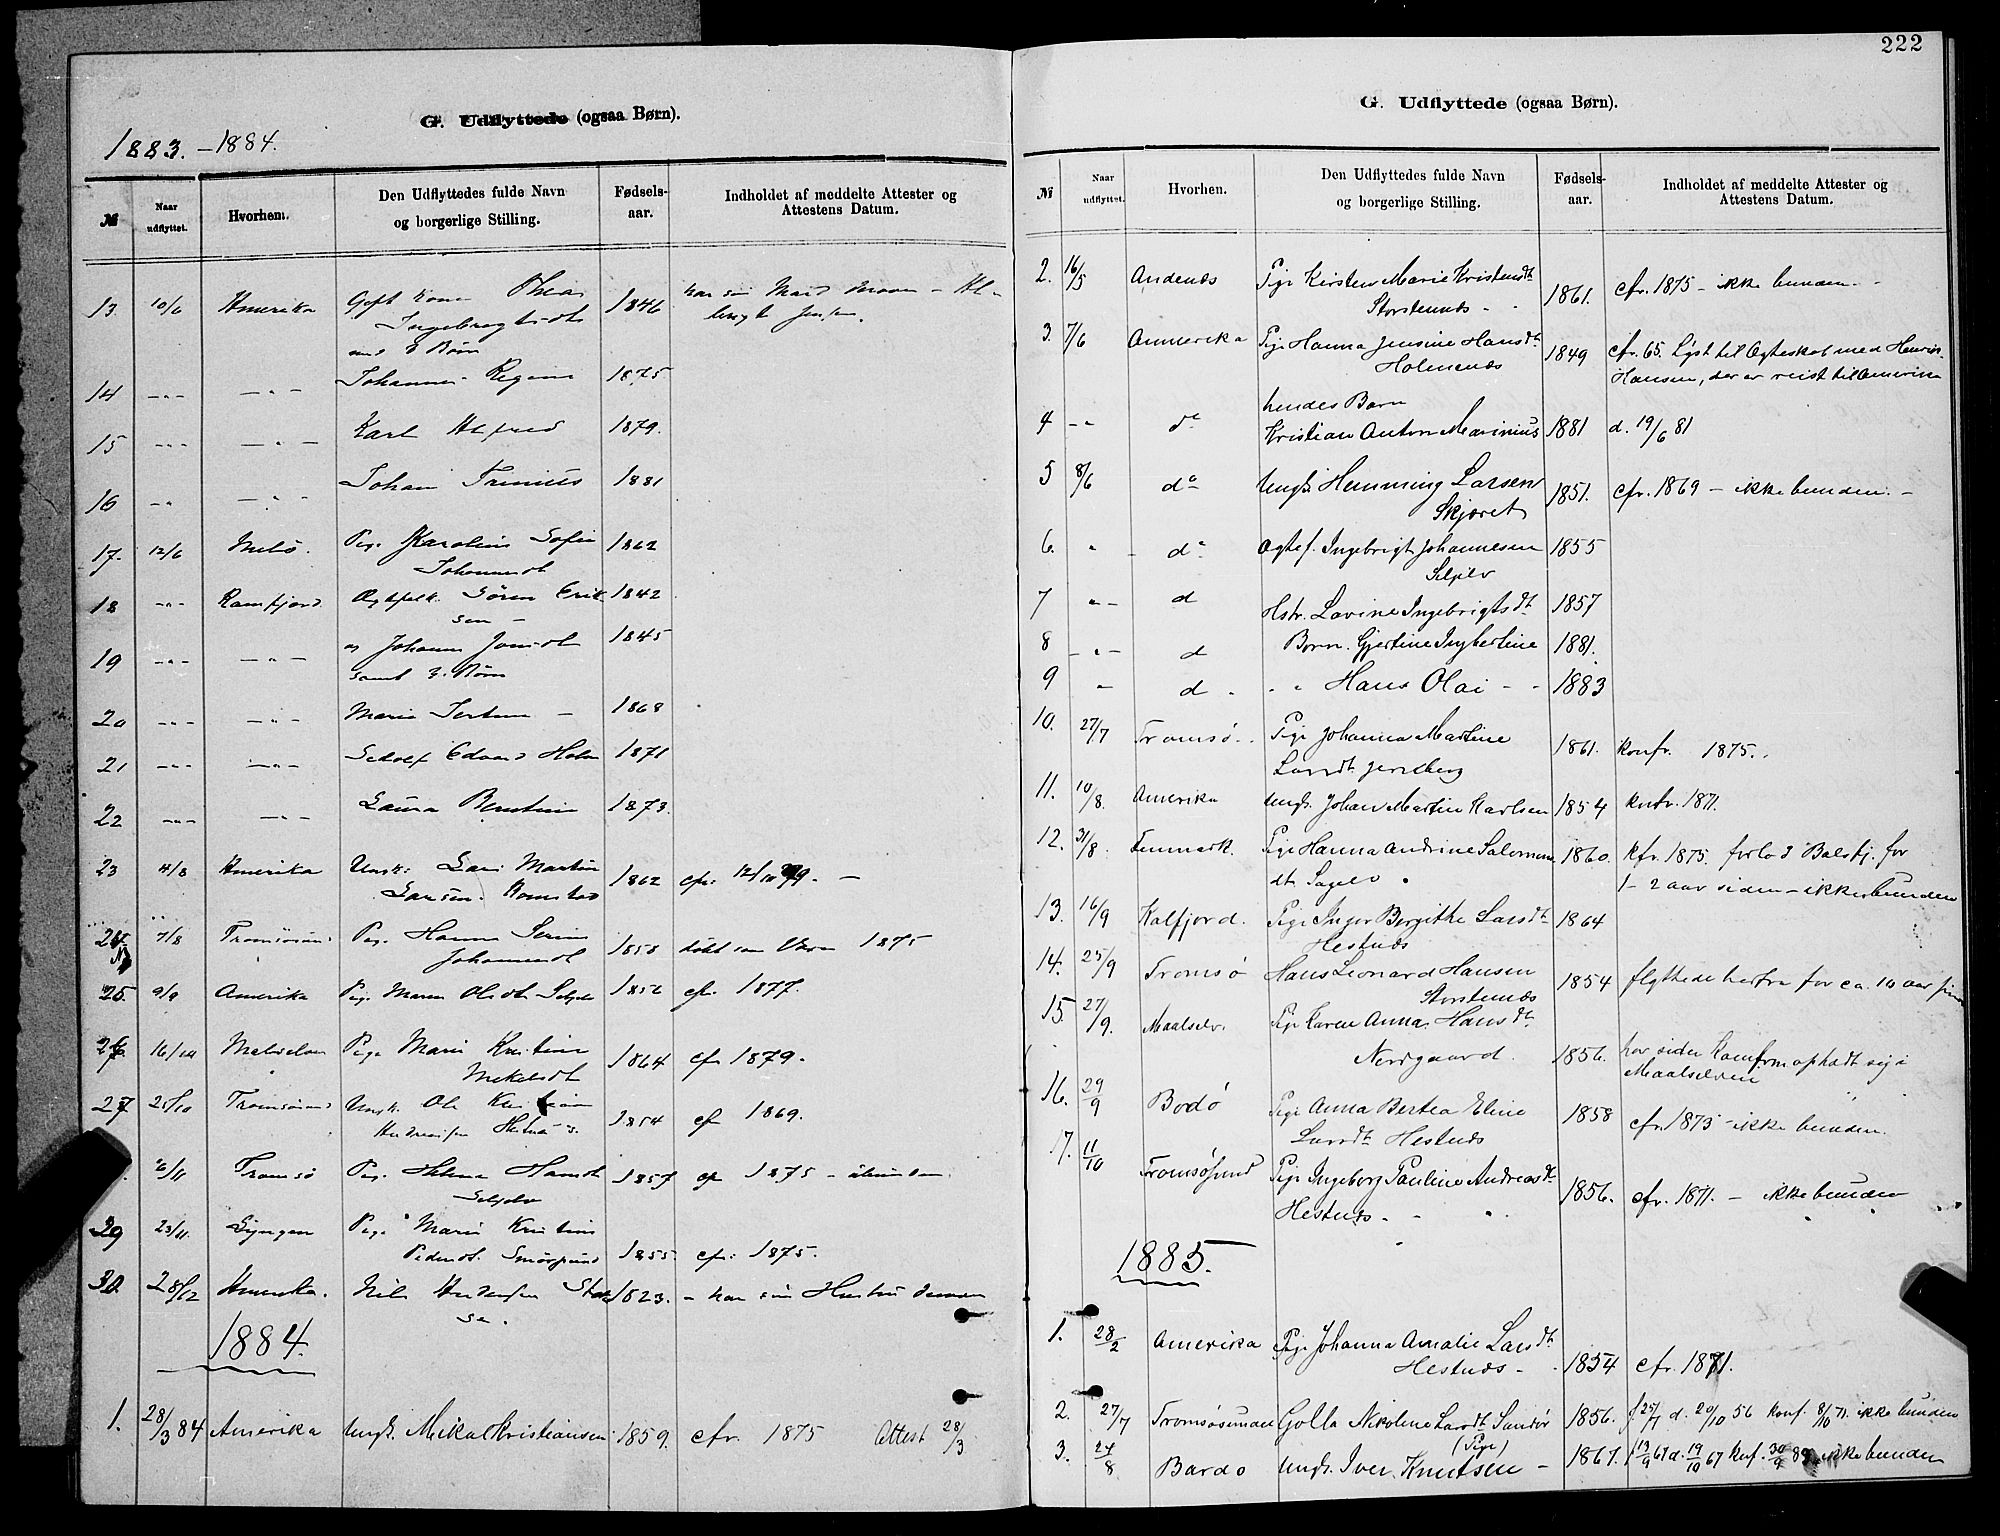 222
G. Udflyttede (ogsaa Børn).
1883.-1884.
№ Naar udflyttet. Hvorhen. Den Udflyttedes fulde Navn og borgerlige Stilling. Fødsels-aar. Indholdet af meddelte Attester og Attestens Datum.
13. 10/6 Amerika Gift Kone Thea 1846 har sin Mand
Ingebrigtsdt
med Børn
14 -"- -"- Johanna Regine 1875
15 -"- -"- Karl Alfred 1879.
16 -"- -"- Johan 1881
17. 12/6 Pige Karoline Sofie 1862
Johannesdt
18 -"- Ramfjord Ægtefolk Søren Erik 1842
sen -
19 -"- -"- og Johanna Jonsdt 1845
samt 3 Børn
20 -"- -"- Marie 1868
21 -"- -"- Edvard Holm 1871
22 -"- -"- Laura Berntine 1873.
23 4/8 Amerika Ungk. Martin 1862 cfr. 12/10 79. -
Larsen
24. 7/8 Tromsøsund Pige Hanna 1858 1875
Johannesdt
25. 9/9 Amerika Pige Maren Olsdt 1856 cfr. 1877.
26 16/10 Maalselven Pige Marie Kristine 1864 cfr 1879.
Mikkelsdt
27 25/10 Tromsøsund Ungk. Ole Kristian 1854 cfr 1869.
Hestnæs.
6/11 Tromsø Pige Helena Hansdt 1857 cfr 1875 -
Seljelv
29 23/11. Lyngen Pige Marie Kristine
Pedersdt. 1855. cfr. 1875.
30. 28/12 Amerika. Nils Andersen 1823. - har sin Hustru
1884.
1. 28/3 84 Amerika Ungk. Mikal Kristiansen 1859. cfr. 1875 Attest 28/3
G. Udflyttede (ogsaa Børn).
№ Naar udflyttet. Hvorhen. Den Udflyttedes fulde Navn og borgerlige Stilling. Fødsels-aar. Indholdet af meddelte Attester og Attestens Datum.
2. 16/5 Andenæs Pige Kirsten Marie Kristensdt 1861. cfr. 1875 - ikke bunden. -
Storstennæs -
3. 7/6 Ammerika Pige Hanna Jensine Hansdt 1849 cfr. 65. Lyst til Ægteskab med Henrik
Holmenæs Hansen, der er reist til Amerika
hendes Barn
4 -"- do Kristian Anton Marinius 1881 d. 19/6 81
5 8/6 do Ungk. Hemming Larsen 1851. cfr. 1869 - ikke bunden. -
Skjæret
6. " - do Ægtef. Ingebrigt Johannesen 1855
Seljelv
7 "- d Hstr. Lovine Ingebrigtsdt 1857
8 -"- d Børn. Gjertine Ingbertine 1881.
9 " d " " Hans Olai - - 1883
10. 27/7 Tromsø. Pige Johanna Martine 1861. konfr. 1875.
Larsdt
11. 10/8. Amerika Ungk. Johan Martin Karlsen 1854 knfr. 1871.
12. 31/8. Finmark. Pige Hanna Andrine Salomons 1860. kfr. 1875. forlod Balsfj. for
dt. Sagelv 1-2 aar siden - ikke bunden
13. 16/9 Kalfjord. Pige Inger Bergithe Larsdt 1864
Hestnæs
14. 25/9 Tromsø Hans Leonard Hansen 1854 flyttede herfra for ca. 10 aar siden
Storstenæs
15. 27/9. Maalselv. Pige Karen Anna Hansdt
Nordgaard. 1856. har siden Konfrm opholdt sig i
Maalselven
16. 29/9 Bodø Pige Anna Bertea Eline 1858 cfr. 1873 - ikke bunden.
Larsdt Hestnæs
17. 11/10 Tromsøsund Pige Ingeborg Pauline Andreasdt 1856. cfr. 1871. - ikke bunden
Hestnæs. -
1885.
1. 28/2 Amerika Pige Johanna Amalie Larsdt
Hestnæs - 1854 cfr. 1871.
2. 27/7 Tromsøsundet Golla Nikoline Larsdt Sandør 1856. f 25/7 d. 20/10 56 konf. 8/10 71. ikke bunden
(Pige)
3. 24/8 Bardo Ungk. Iver Knutsen - 1867. f 13/9 67 d. 19/10 67 knf. 30/9 83 ikke bunden